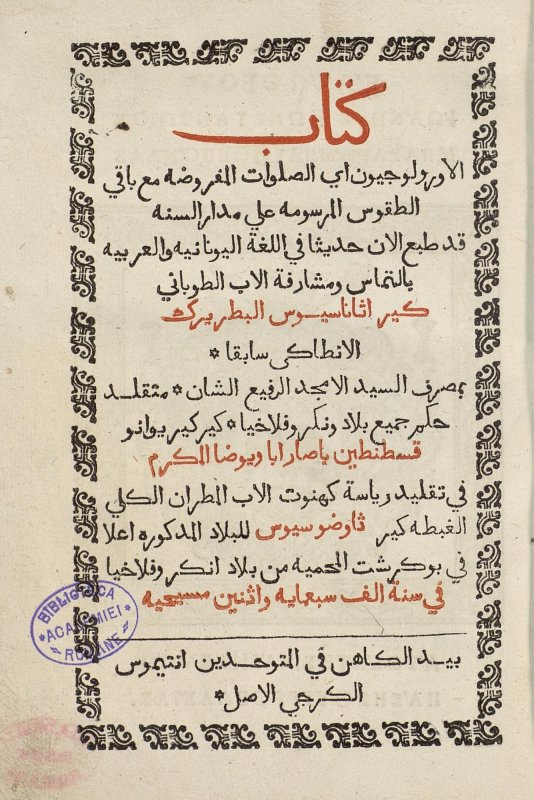 كتاب
الاورولوجيون اي الصلوات المفروضه مع باقي
الطقوس المرسومه علي مدار السنه
قد طبع الان حديثا في اللغة اليونانيه والعربيه
بالتماس ومشارفة الاب الطوباني
كير اثاناسيوس البطريرك
الانطاكي سابقا *
بمصرف السيد الامجد الرفيع الشان * متقلد
حكم جميع بلاد ونكروفلاخيا * كير كير يوانو
قسطنطين باصارابا ويوضا المكرم
في تقليد رياسة كهنوت الاب المطران الكلي
الغبطه كير ثاوضوسيوس للبلاد المذكوره اعلا
في بوكرشت المحميه من بلاد انكروفلاخيا
في سنة الف سبعمايه واثنين مسيحيه
بيد الكاهن في المتوحدين انتيموس
الكرجي الاصل *
BIBLIOTECA
* ACADEMIEI *
ROMINE